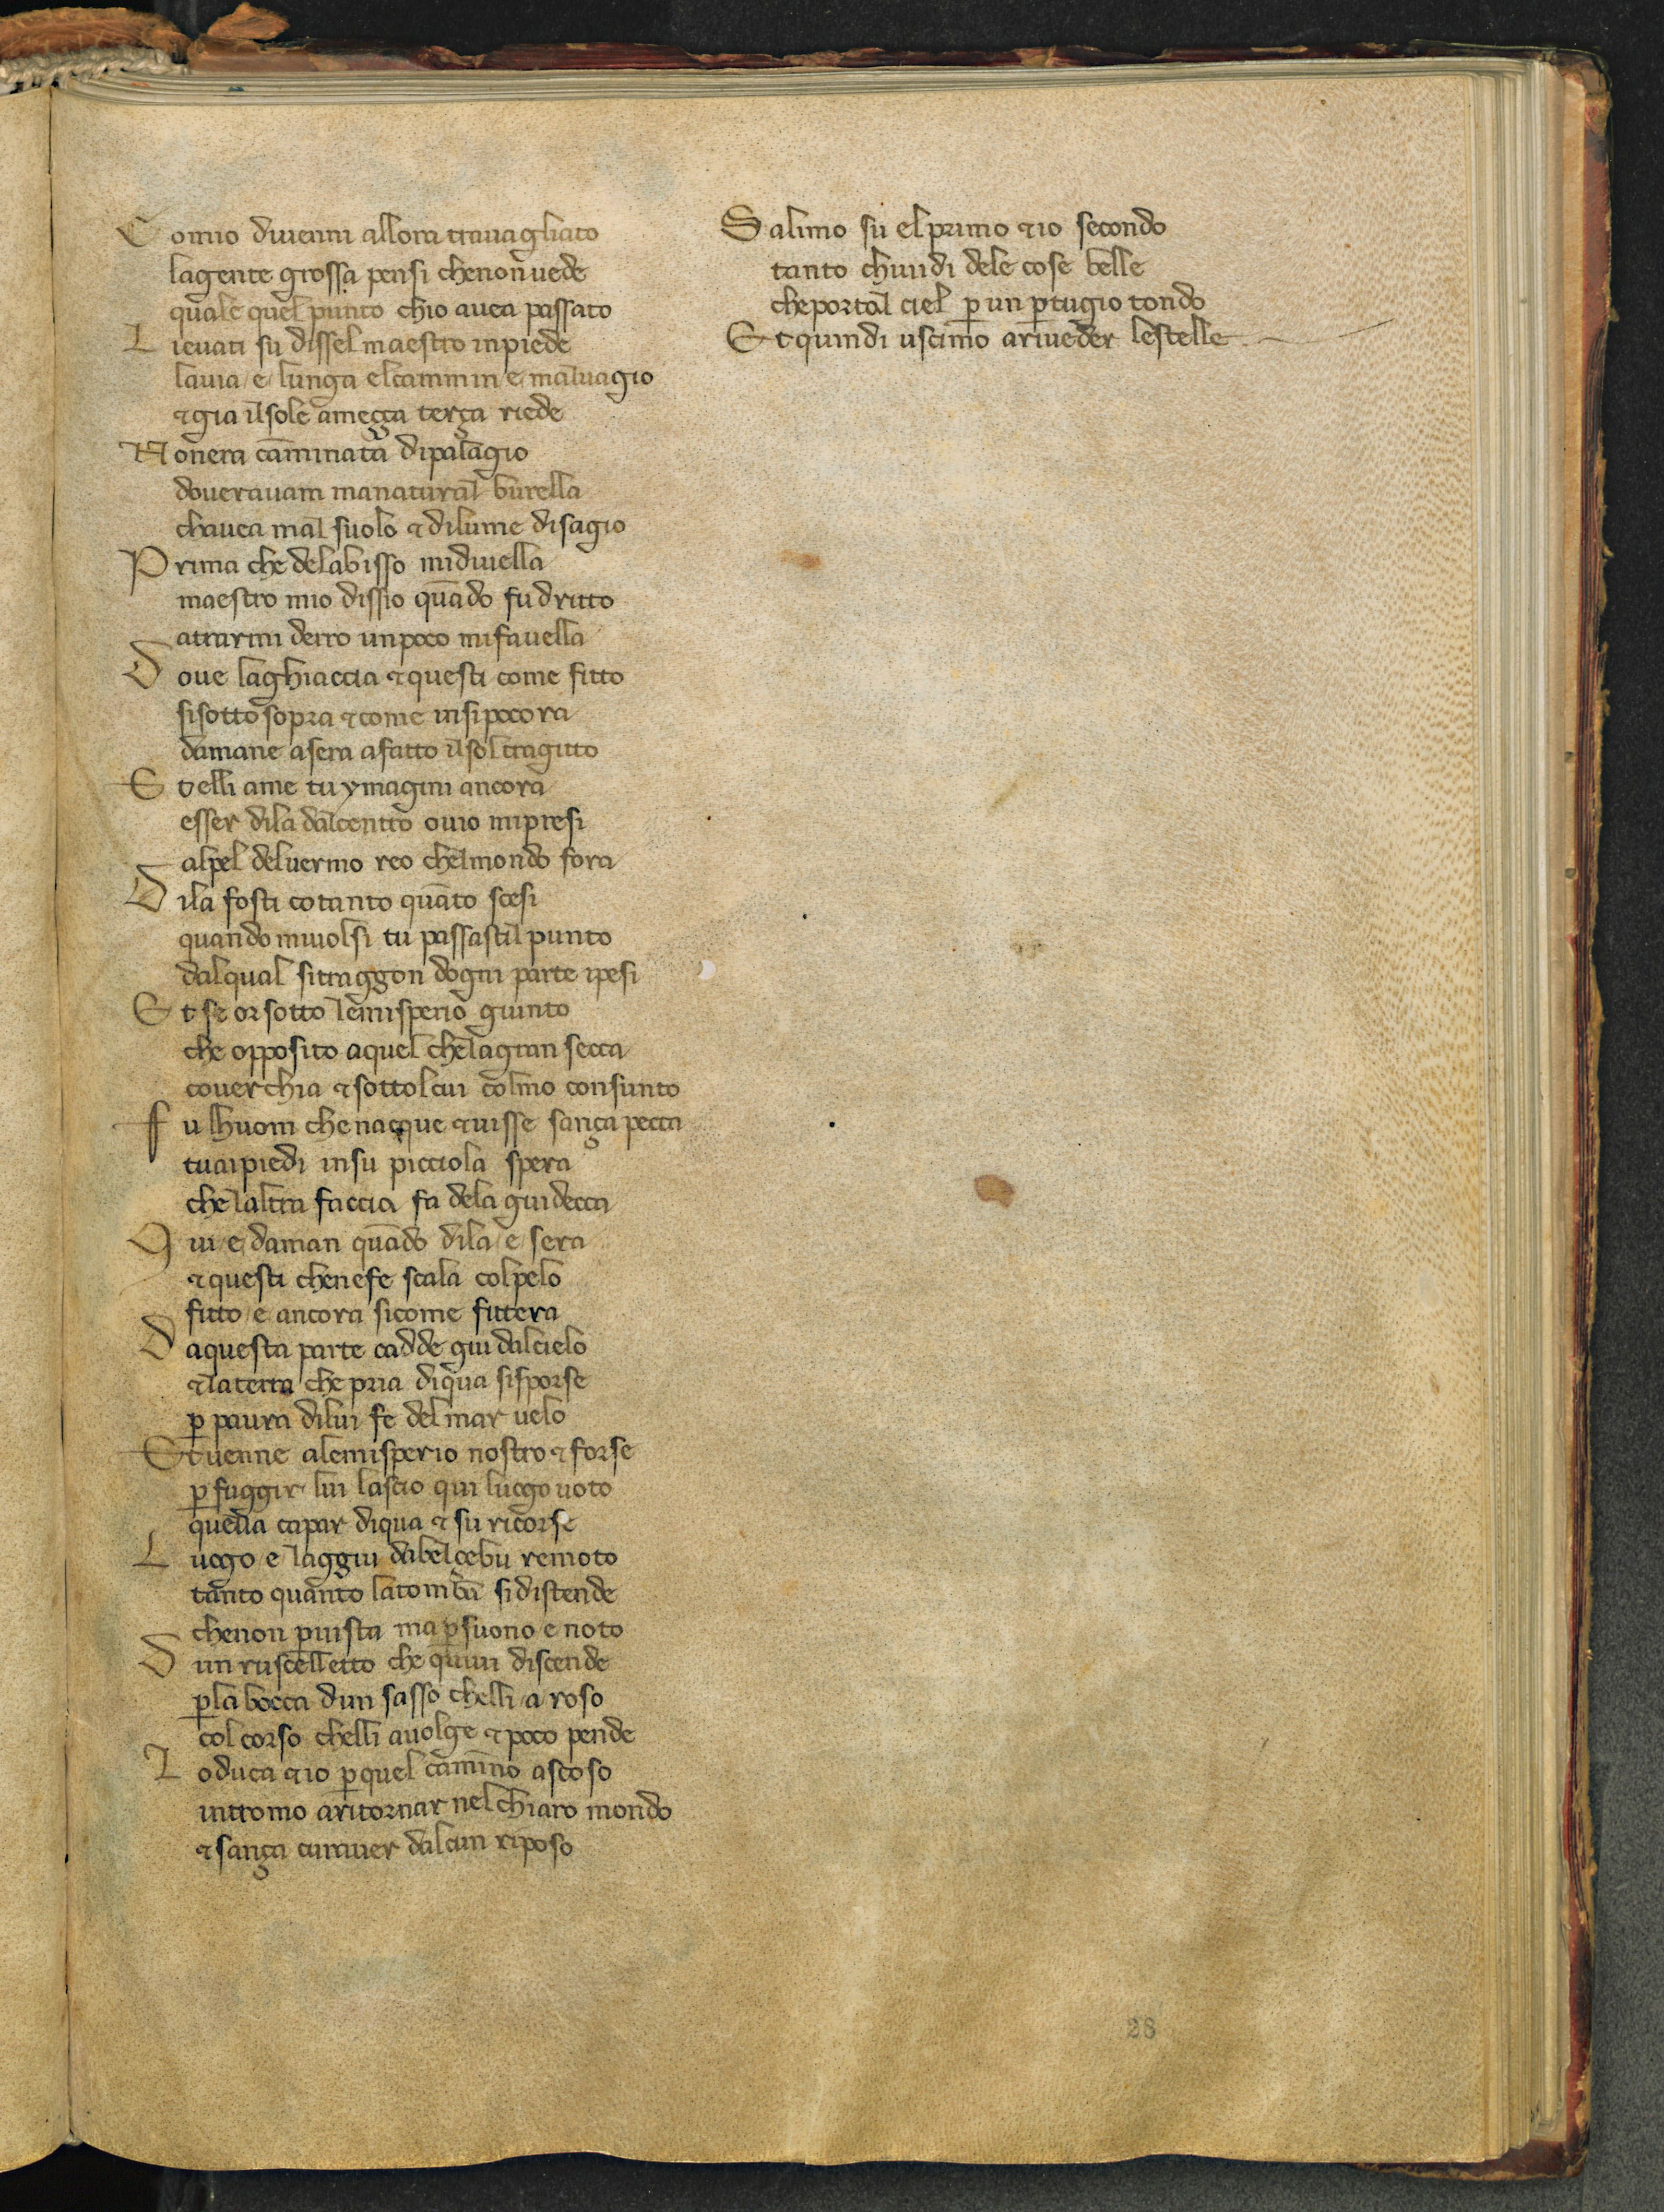 Comio diuenni allora trauagliato
lagente grossa pensi chenon uede
quale quel punto chio auea passato
Lieuati su dissel maestro inpiede
lauia e lunga elcammin e maluagio
⁊gia ilsole ameçça terça riede
Nonera cāminata dipalagio
douerauam manatural burella
chauea mal suolo ⁊ dilume disagio
Prima che delabisso midiuella
maestro mio dissio quādo fu dritto
atrarmi derro unpoco mifauella
Doue laghiaccia ⁊questi come fitto
sisottosopra ⁊come insipocora
damane asera afatto ilsol tragitto
Et elli ame tu ymagini ancora
esser dila dalcentro ouio mipresi
alpel deluermo reo chelmondo fora
Dila fosti cotanto quāto scesi
quando miuolsi tu passastil punto
dalqual sitraggon dogni parte ipesi
Et se or sotto lemisperio giunto
che opposito aquel chelagran secca
couerchia ⁊sottolcui colmo consunto
Fu lhuom che nacque ⁊uisse sança pecca
tuaipiedi insu picciola spera
che laltra faccia fa dela guidecca
Qui e daman quādo dila e sera
⁊questi chenefe scala colpelo
fitto e ancora sicome fittera
Daquesta parte cadde giu dalcielo
⁊laterra che pria diqua sisporse
p̱ paura dilui fe delmar uelo
Et uenne alemisperio nostro ⁊ forse
p̱ fuggir lui lascio qui luogo uoto
quella capar diqua ⁊ su ricorse
Luogo e laggiu dabelçebu remoto
tanto quanto latomba si distende
chenon p̱uista ma p̱suono e noto
Dun ruscelletto che quiui discende
p̱la bocca dun sasso chelli a roso
col corso chelli auolge ⁊ poco pende
Loduca ⁊io p̱quel camīno ascoso
intromo aritornar nel chiaro mondo
⁊ sança cura auer dalcun riposo
Salimo su elprimo ⁊io secondo
tanto chiuidi dele cose belle
cheportal ciel p̱ un p̱tugio tondo
Et quindi uscimo ariueder lestelle
28